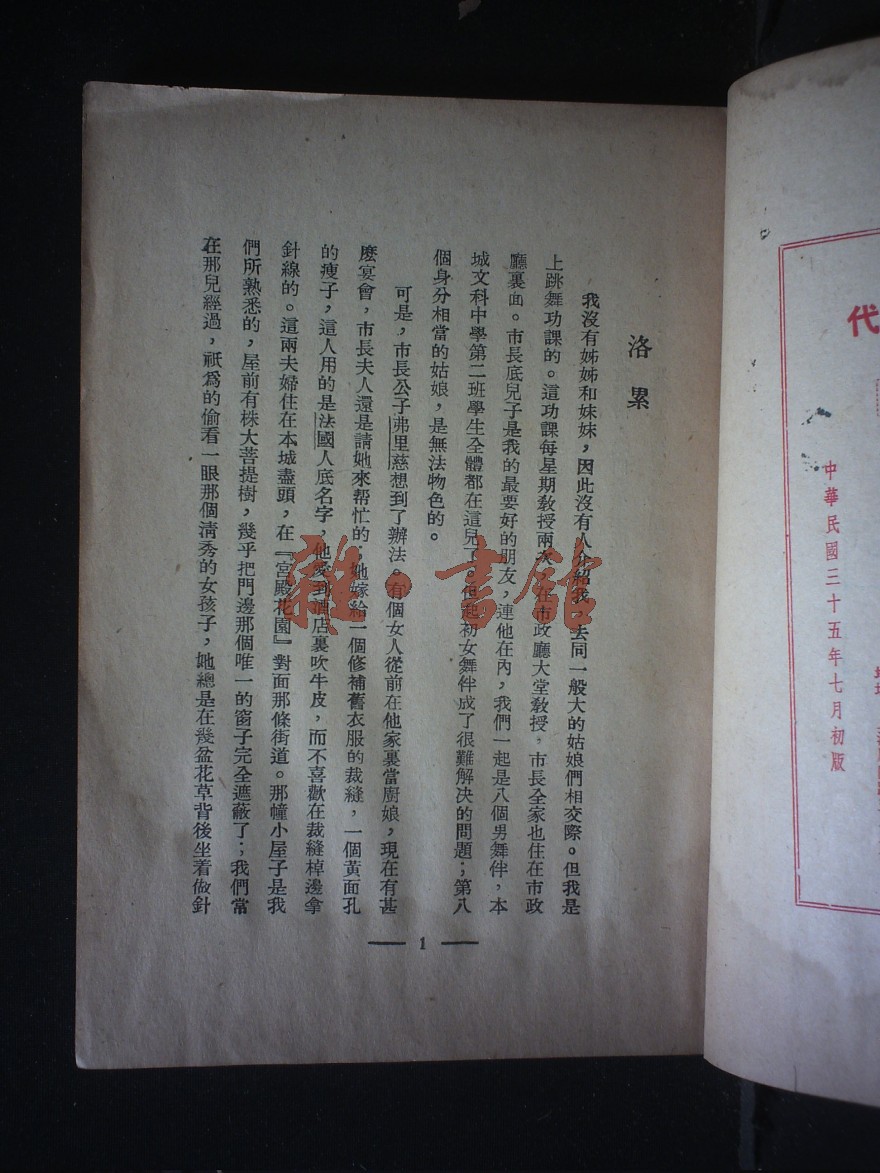 洛累
我沒有姊姊和妹妹，因此沒有人介紹我，去同一般大的姑娘們相交際。但我是
上跳舞功課的。這功課每星期教授兩次，在市政廳大堂教授，市長全家也住在市政
廳裏面。市長底兒子是我的最要好的朋友，連他在內，我們一起是八個男舞伴，本
城文科中學第二班學生全體都在這兒了。但起初女舞伴成了很難解決的問題；第八
個身分相當的姑娘，是無法物色的。
可是，市長公子弗里慈想到了辦法。有個女人從前在他家裏當廚娘，現在有甚
麽宴會，市長夫人還是請她來帮忙的，她嫁給一個修補舊衣服的裁縫，一個黃面孔
的瘦子，這人用的是法國人底名字，他愛到酒店裏吹牛皮，而不喜歡在裁縫棹邊拿
針線的。這兩夫婦住在本城盡頭，在『宮殿花園』對面那條街道。那幢小屋子是我
們所熟悉的，屋前有株大菩提樹，幾乎把門邊那個唯一的窗子完全遮蔽了；我們常
在那兒經過，祇爲的偷看一眼那個清秀的女孩子，她總是在幾盆花草背後坐着做針
1
代
中華民國三十五年七月初版
雜·書館